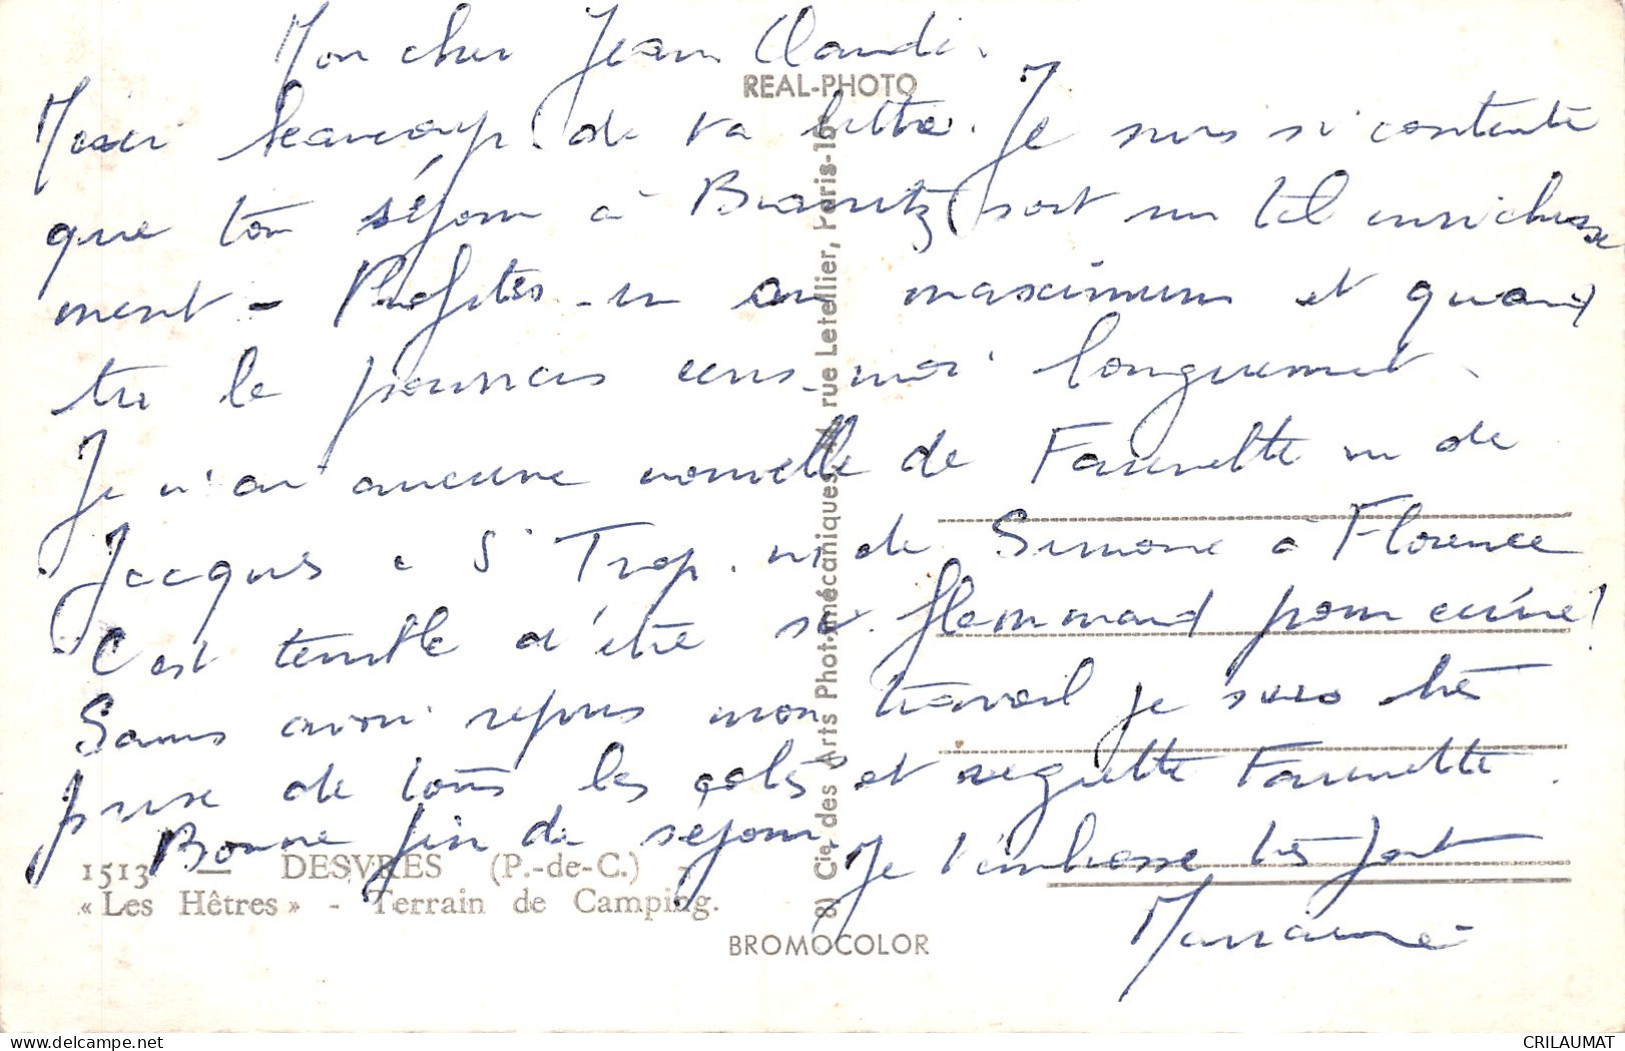 Mon cher Jean Claude.
REAL-PHOTO
Merci beaucoup de ta lettre. Je suis si contente
que ton séjour à Biarritz soit un tel enrichisse
ment - Profites-en au maximum et quand
tu le pourras écris-moi longuement.
Je n'ai aucune nouvelle de Fannette ni de
Jacques à St Trop. ni de Simone à Florence
C'est terrible d'être si flemmard pour écrire!
Sans avoir repris mon travail je suis très
prise de tous les côtés et regrette Fannette.
Bonne fin de séjour. Je t'embrasse très fort
Marraine
1513 — DESVRES (P.-de-C.)
« Les Hêtres » - Terrain de Camping.
BROMOCOLOR
Cie des Arts Photomécaniques, rue Letellier, Paris-15e
delcampe.net
CRILAUMAT